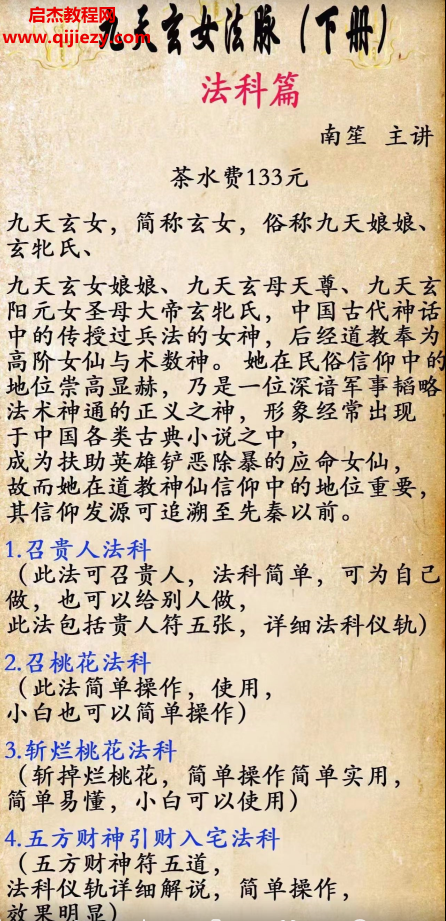 启杰教程网
www.qijiezy.com
九天玄女法脉（下册）
法科篇
南笙 主讲
茶水费133元
九天玄女，简称玄女，俗称九天娘娘、
玄牝氏、
九天玄女娘娘、九天玄母天尊、九天玄
阳元女圣母大帝玄牝氏，中国古代神话
中的传授过兵法的女神，后经道教奉为
高阶女仙与术数神。 她在民俗信仰中的
地位崇高显赫，乃是一位深谙军事韬略，
法术神通的正义之神，形象经常出现
于中国各类古典小说之中，
成为扶助英雄铲恶除暴的应命女仙，
故而她在道教神仙信仰中的地位重要，
其信仰发源可追溯至先秦以前。
1.召贵人法科
（此法可召贵人，法科简单，可为自己
做，也可以给别人做，
此法包括贵人符五张，详细法科仪轨）
2.召桃花法科
（此法简单操作，使用，
小白也可以简单操作）
3.斩烂桃花法科
（斩掉烂桃花，简单操作简单实用，
简单易懂，小白可以使用）
4.五方财神引财入宅法科
（五方财神符五道，
法科仪轨详细解说，简单操作，
效果明显）